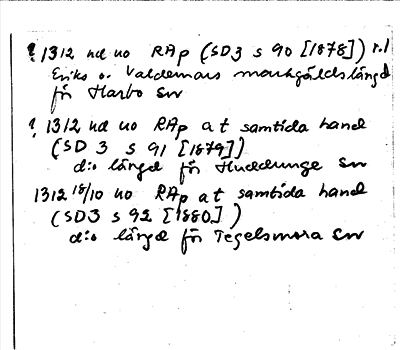 ? 1312 nd no RAp (SD3 s 90 [1878]) r.1
Eriks o. Valdemars markgäldslängd
för Harbo sn
? 1312 nd no RAp at samtida hand
(SD 3 s 91 [1879])
d:o längd för Huddunge sn
1312 18/10 no RAp at samtida hand
(SD3 s 92 [1880])
d:o längd för Tegelsmora sn